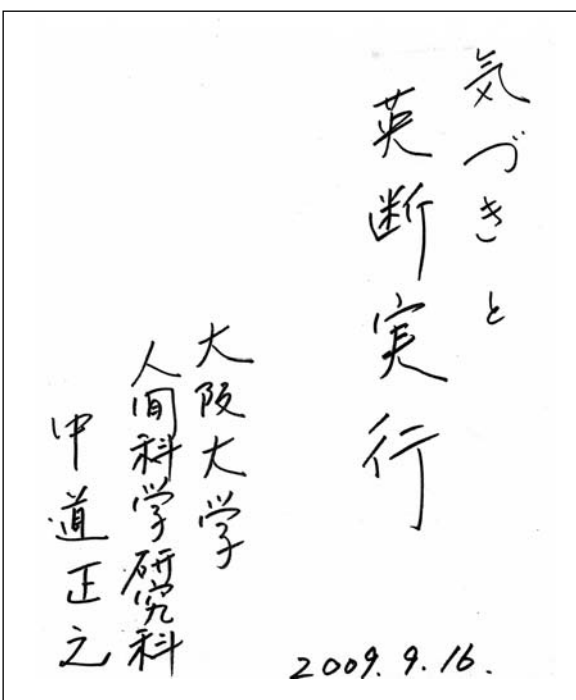 気づきと
英断実行
大阪大学
人間科学研究科
中道正之
2009.9.16.